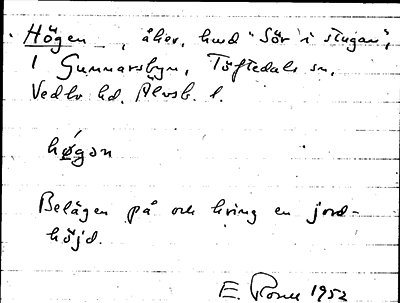 Högen, åker, hmd "Sör i stugan",
1 Gunnarsbyn, Töftedals sn,
Vedbo hd. Älvsb. l.
høgǝn
Belägen på och kring en jord-
höjd.
E. 1952